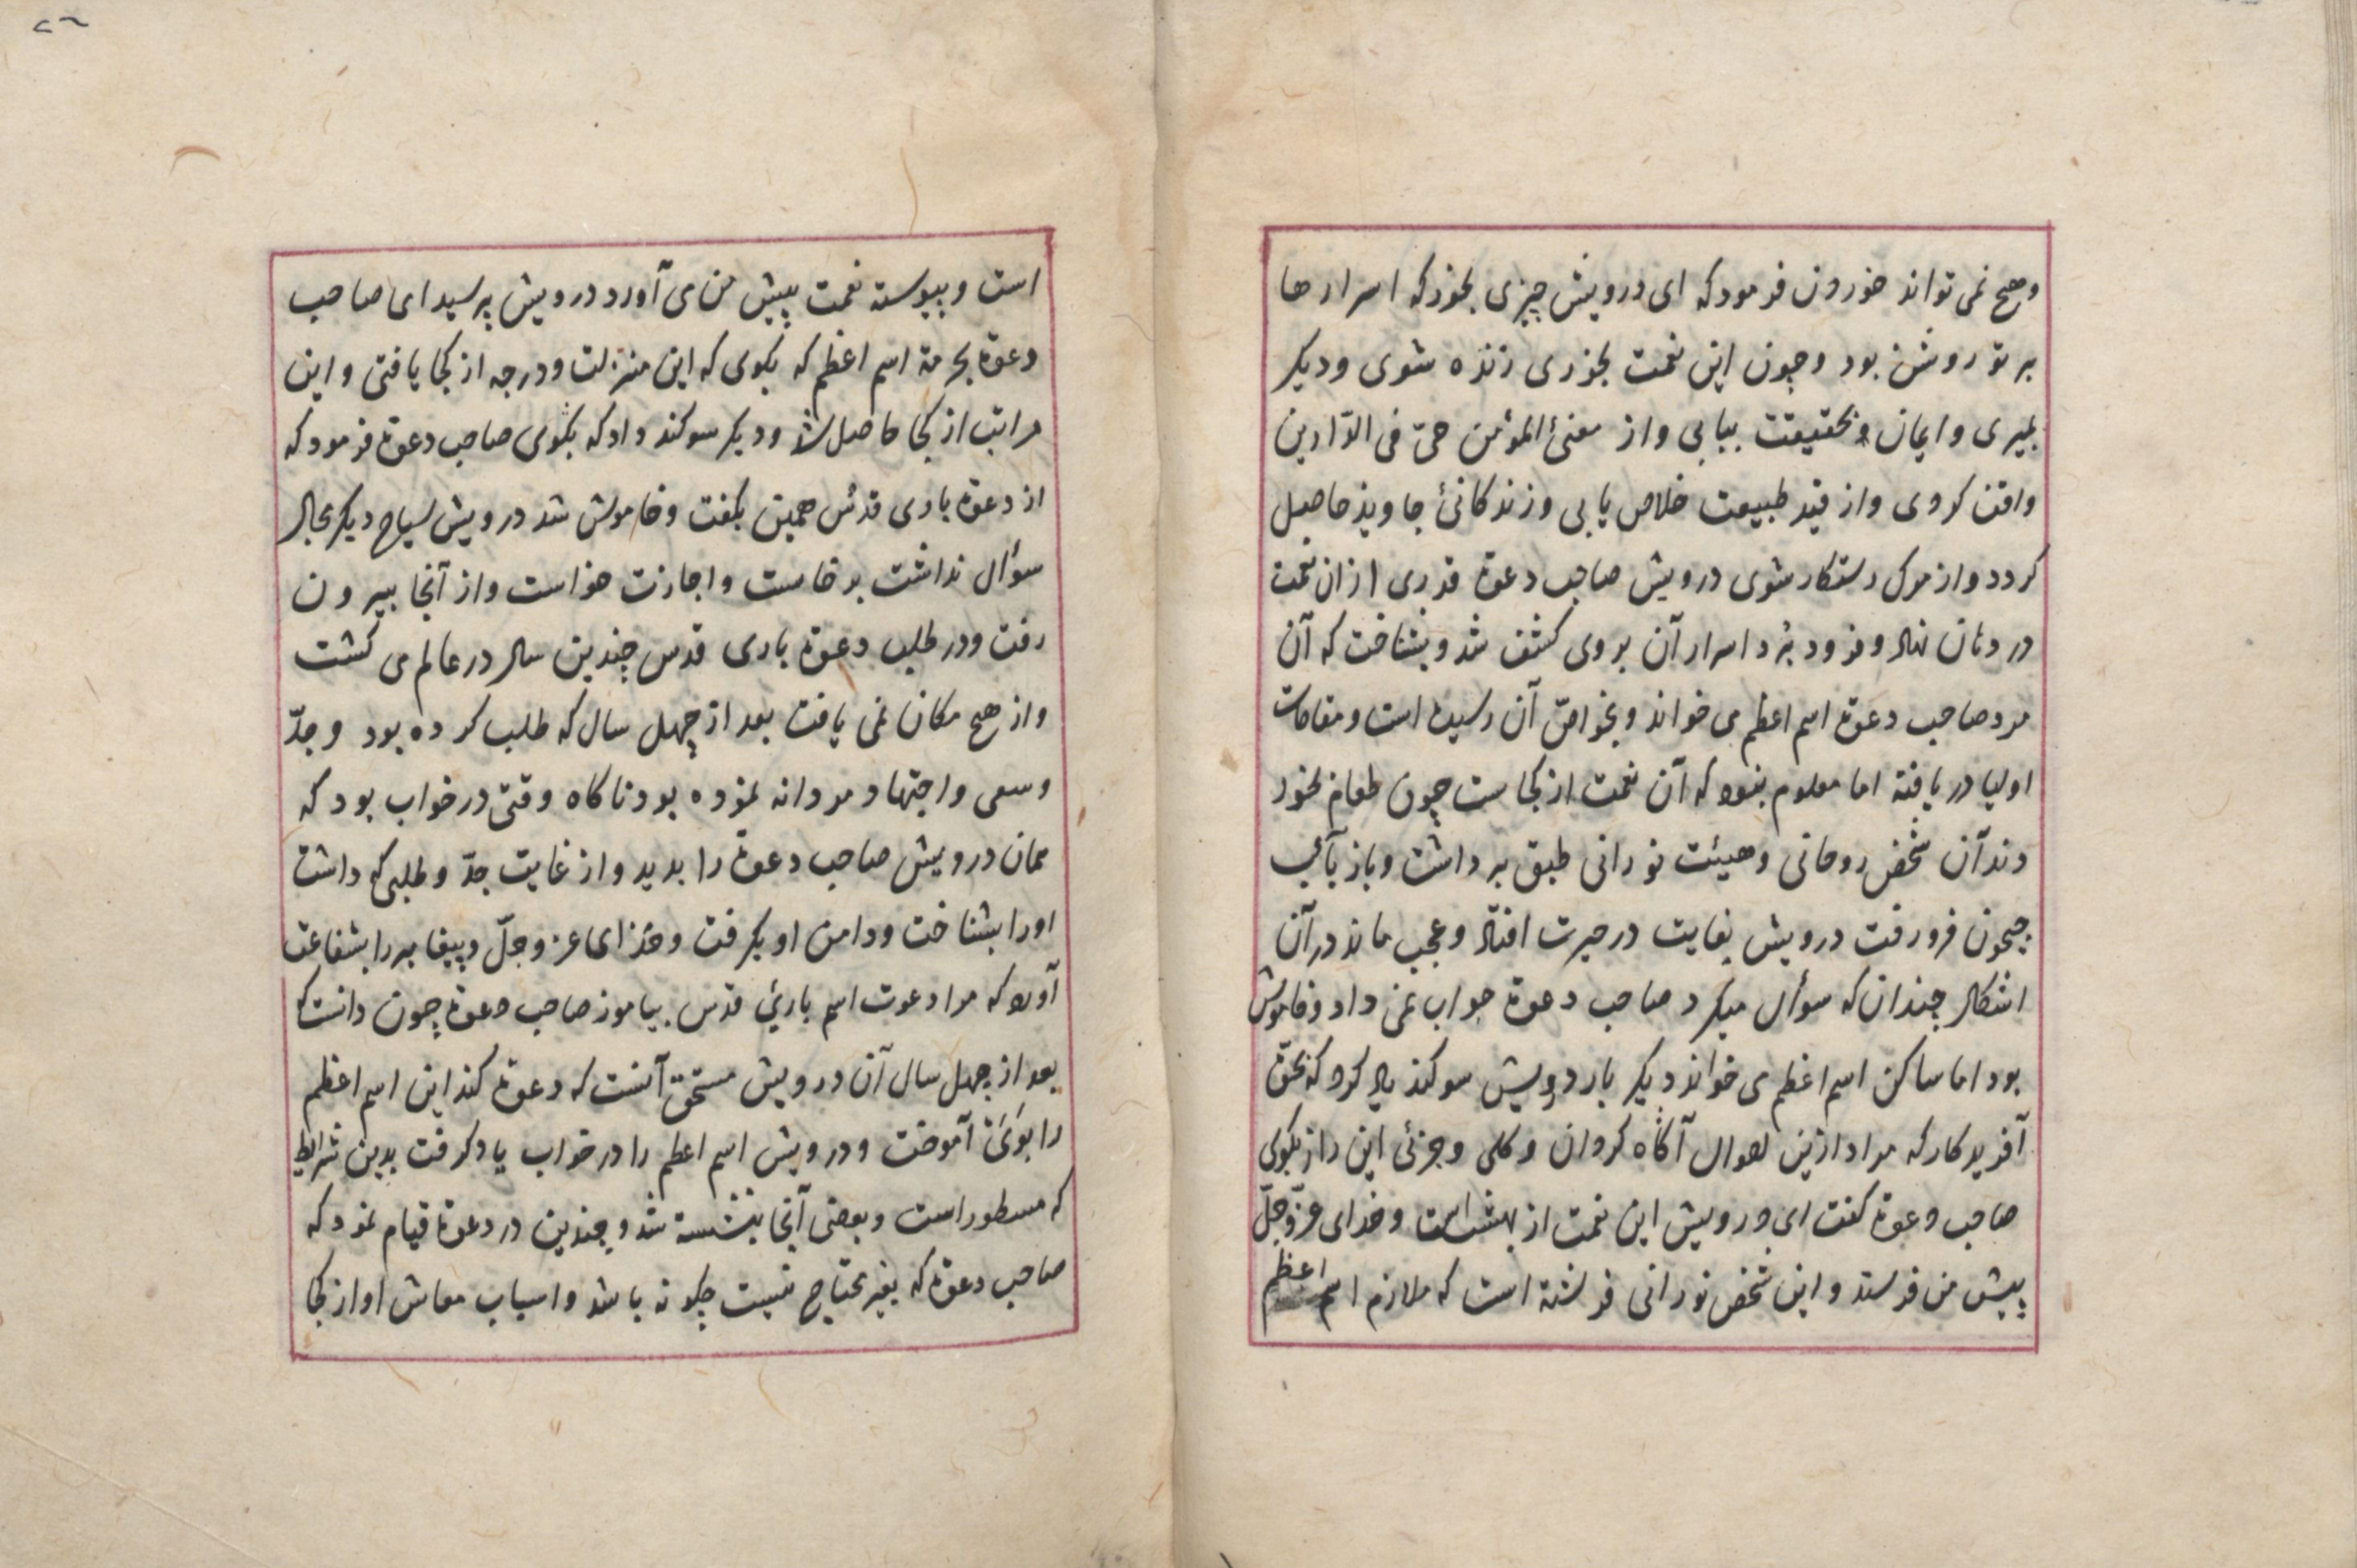 وهیچ نمی تواند خوردن فرمود که ای درویش چیزی بخور که اسرارها
بر تو روشن بود وچون این نعمت بخوری زنده شوی ودیکر
نمیری وایمان وبحقیقت بیابی واز معنئ المؤمن حیّ فی الدّارین
واقف کردی واز قید طبیعت خلاص یابی وزندکانئ جاوید حاصل
کردد واز مرک رستکار شوی درویش صاحب دعوة قدری ازان نعمت
در دهان نهاد وفرود برد اسرار آن بروی کشف شد وبشناخت که آن
مرد صاحب دعوة اسم اعظم می خواند وبخواصّ آن رسیده است ومقامات
اولیا دریافته اما معلوم نبود که آن نعمت از کجاست چون طعام بخور
دند آن شخص روحانی وهیئت نورانی طبق برداشت وباز بآب
جیحون فرورفت درویش بغایت در حیرت افتاد وعجب ماند در آن
اشکال چندان که سؤال میکرد صاحب دعوة جواب نمی داد وخاموش
بود اما ساکن اسم اعظم می خواند دیکر بار درویش سوکند یاد کرد که بحقّ
آفریدکار که مرا ازین احوال آکاه کردان وکلی وجزئی این راز بکوی
صاحب دعوة کفت ای درویش این نعمت از بهشت است وخدای عزّوجلّ
پیش من فرستد واین شخص نورانی فرشته است که ملازم اسم اعظم
٢٦
است وپیوسته نعمت پیش من می آورد درویش پرسید ای صاحب
دعوة بحرمة اسم اعظم که بکوی که این منزلت ودرجه از کجا یافتی واین
مراتب از کجا حاصل شد ودیکر سوکند داد که بکوی صاحب دعوة فرمود که
از دعوة باری قدّس همین بکفت وخاموش شد درویش سیاح دیکر مجال
سؤال نداشت برخاست واجازت خواست واز آنجا بیرون
رفت ودر طلب دعوة باری قدس چندین سال در عالم می کشت
واز هیچ مکان نمی یافت بعد از چهل سال که طلب کرده بود وجدّ
وسعی واجتهاد مردانه نموده بود ناکاه وقتی در خواب بود که
همان درویش صاحب دعوة را بدید واز غایت جدّ وطلبی که داشت
اورا بشناخت ودامن او بکرفت وخدای عزوجلّ وپیغامبر را بشفاعت
آورد که مرا دعوت اسم بارئ قدس بیاموز صاحب دعوة چون دانست که
بعد از چهل سال آن درویش مستحق آنست که دعوة کند این اسم اعظم
را بوی آموخت ودرویش اسم اعظم را در خواب یاد کرفت بدین شرایط
که مسطور است وبعضی آنجا بنشسته شد وچندین در دعوة قیام نمود که
صاحب دعوة که بغیر محتاج نیست چکونه باشد واسباب معاش او از کجا